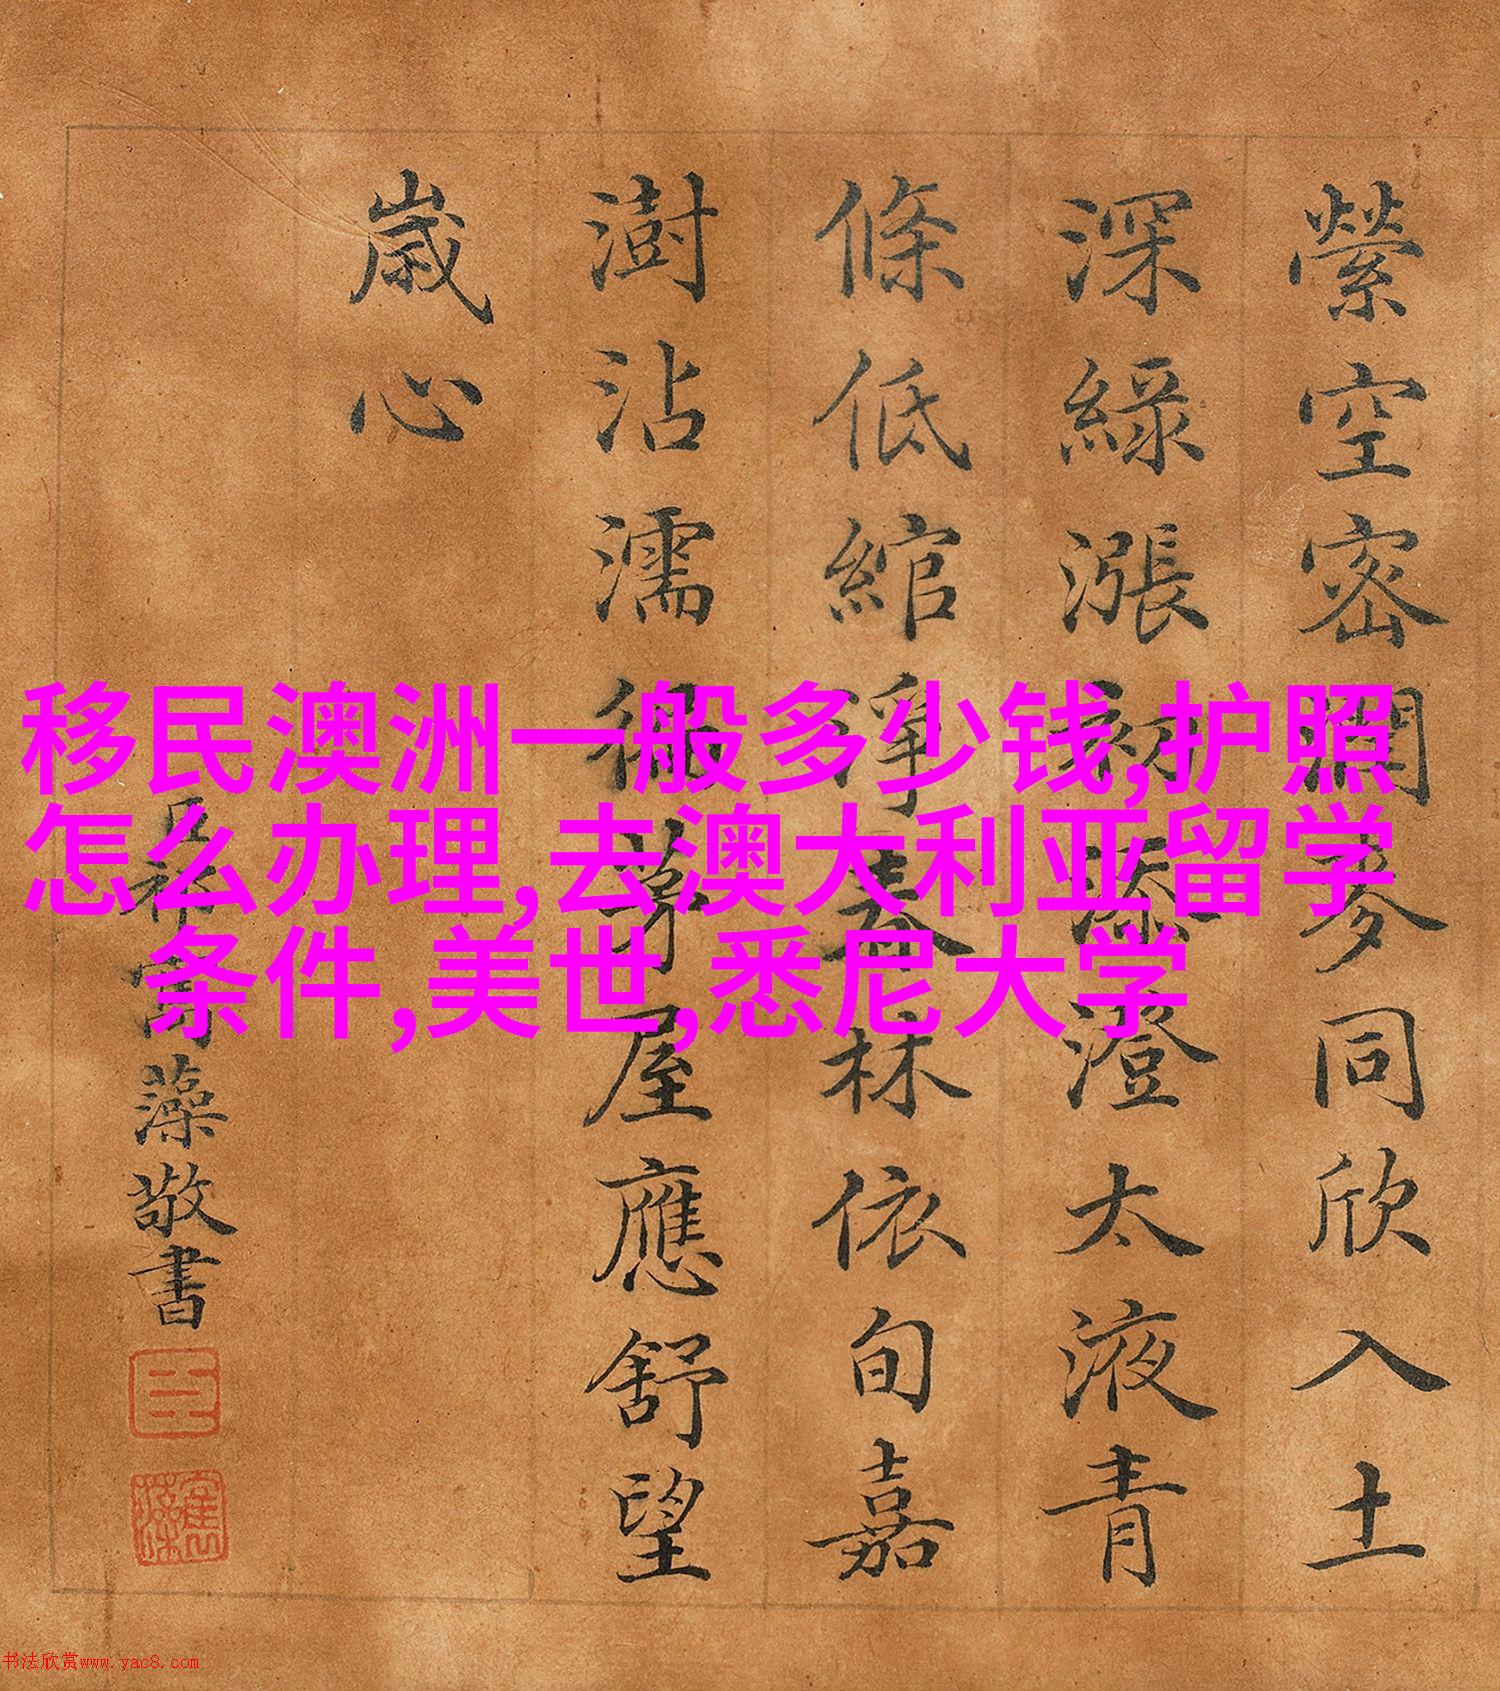 移民澳洲一般多少钱,护照
怎么办理,去澳大利亚留学
条件,美世,悉尼大学
縈空密同欣入土
深綠漲初添澄太液青
條低綰淨春林依旬嘉
澍沾濡徧蔀屋應舒望
歲心
臣祁寯藻敬書
臣
寯藻
书法欣赏www.yac8.com